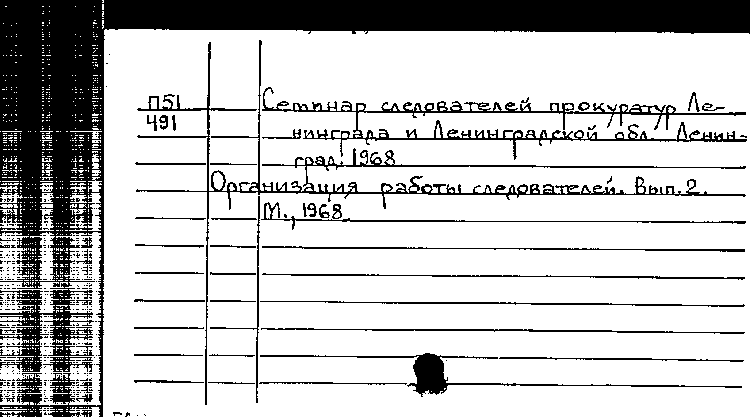 П51 Семинар следователей прокуратур Ле-
491 нинграда и Ленинградской обл. Ленин-
град. 1968
Организация работы следователей. Вып. 2.
М., 1968